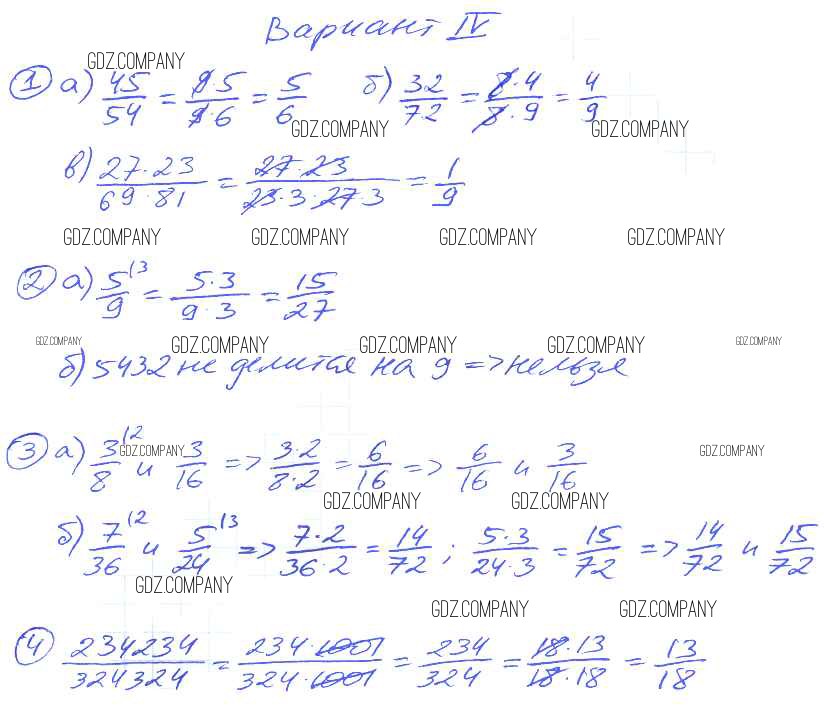 Вариант IV
GDZ.COMPANY
① а) 45/54 = 9·5/9·6 = 5/6 б) 32/72 = 8·4/8·9 = 4/9
GDZ.COMPANY GDZ.COMPANY
в) 27·23/69·81 = 27·23/23·3·27·3 = 1/9
GDZ.COMPANY GDZ.COMPANY GDZ.COMPANY GDZ.COMPANY
② а) 5/9 \3 = 5·3/9·3 = 15/27
GDZ.COMPANY GDZ.COMPANY GDZ.COMPANY GDZ.COMPANY GDZ.COMPANY
б) 5432 не делится на 9 => нельзя
③ а) 3/8 \2 и 3/16 => 3·2/8·2 = 6/16 => 6/16 и 3/16
GDZ.COMPANY GDZ.COMPANY
GDZ.COMPANY GDZ.COMPANY
б) 7/36 \2 и 5/24 \3 => 7·2/36·2 = 14/72 ; 5·3/24·3 = 15/72 => 14/72 и 15/72
GDZ.COMPANY
GDZ.COMPANY GDZ.COMPANY
④ 234234/324324 = 234·1001/324·1001 = 234/324 = 18·13/18·18 = 13/18